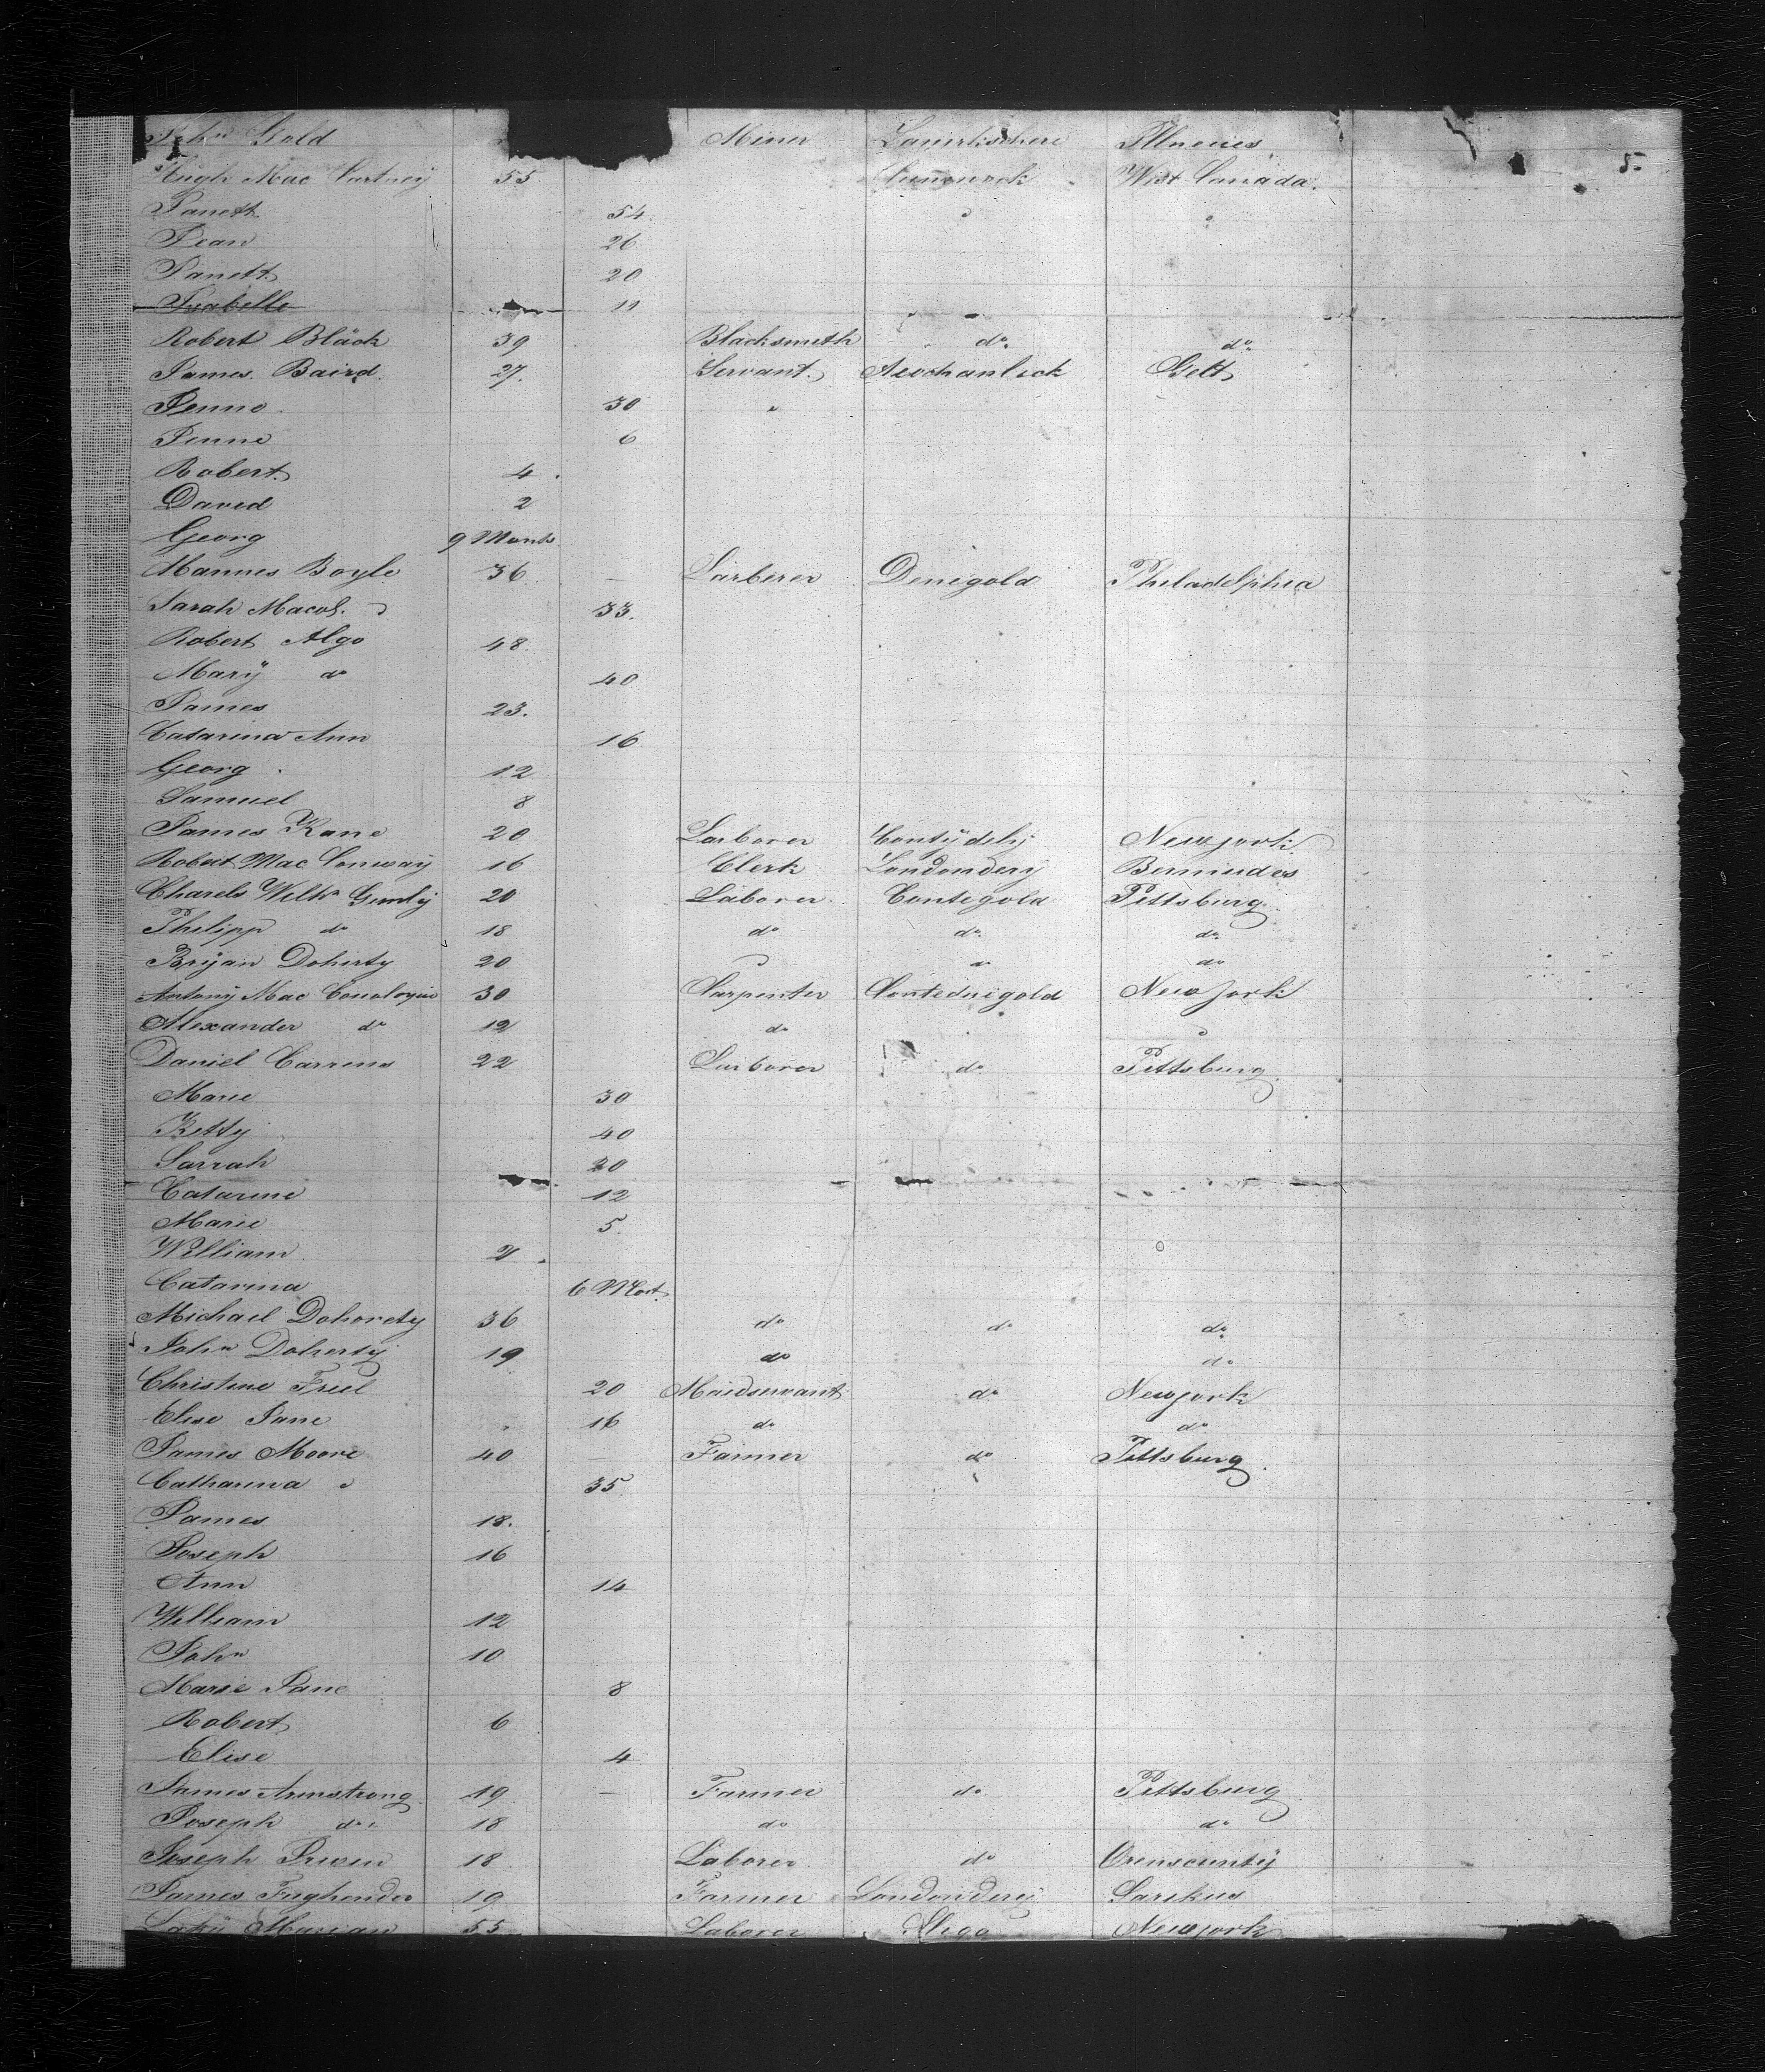 John Gold Miner Lanirkschere Illneues
5.
Hugh Mac Cartney 55 Cumonock West Canada.
Janett 54
Jean 26
Janett 20
Isabelle 11
Robert Bläck 39 Blacksmeth do do
James. Baird. 27. Servant. Auchanleck Gelt
Jenne 30
Jenne 6
Robert 4
David 2
Georg 9 Monts
Mannes Boyle 36 — Larberer Denigold Philadelphia
Sarah Macol. 33.
Robert Algo 48.
Marÿ do 40
James 23.
Catarina Ann 16
Georg 12
Samuel 8
James Kane 20 Larborer Contÿ dehÿ Newjork
Robert Mac Conway 16 Clerk Londonderÿ Bermudes
Charels Willm 20 Laborer Contegold Pittsburg
Philipp do 18 do do do
Brÿan Doherty 20 do do
Antonÿ Mac Conologue 30 Carpenter Contednigold New Jork
Alexander do 12 do
Daniel Carrens 22 Larborer do Pittsburg
Marie 30
Kettÿ 40
Sarrah 20
Catarine 12
Marie 5
William 2
Catarina 6 Mont.
Michael Dohorety 36 do do do
John Dohertÿ 19 do do
Christine Freel 20 Maidservant do Newjork
Elise Jane 16 do do
James Moore 40 Farmer do Pittsburg
Catharina 35
James 18.
Joseph 16
Ann 14
William 12
John 10
Marie Jane 8
Robert 6
Elise 4
James Armstrong 19 — Farmer do Pittsburg
Joseph do 18 do do
Joseph 18 Laborer do Orenscuntÿ
James Fughender 19 Farmer Londonderÿ
Marian 55 Laborer Sligo Newjork